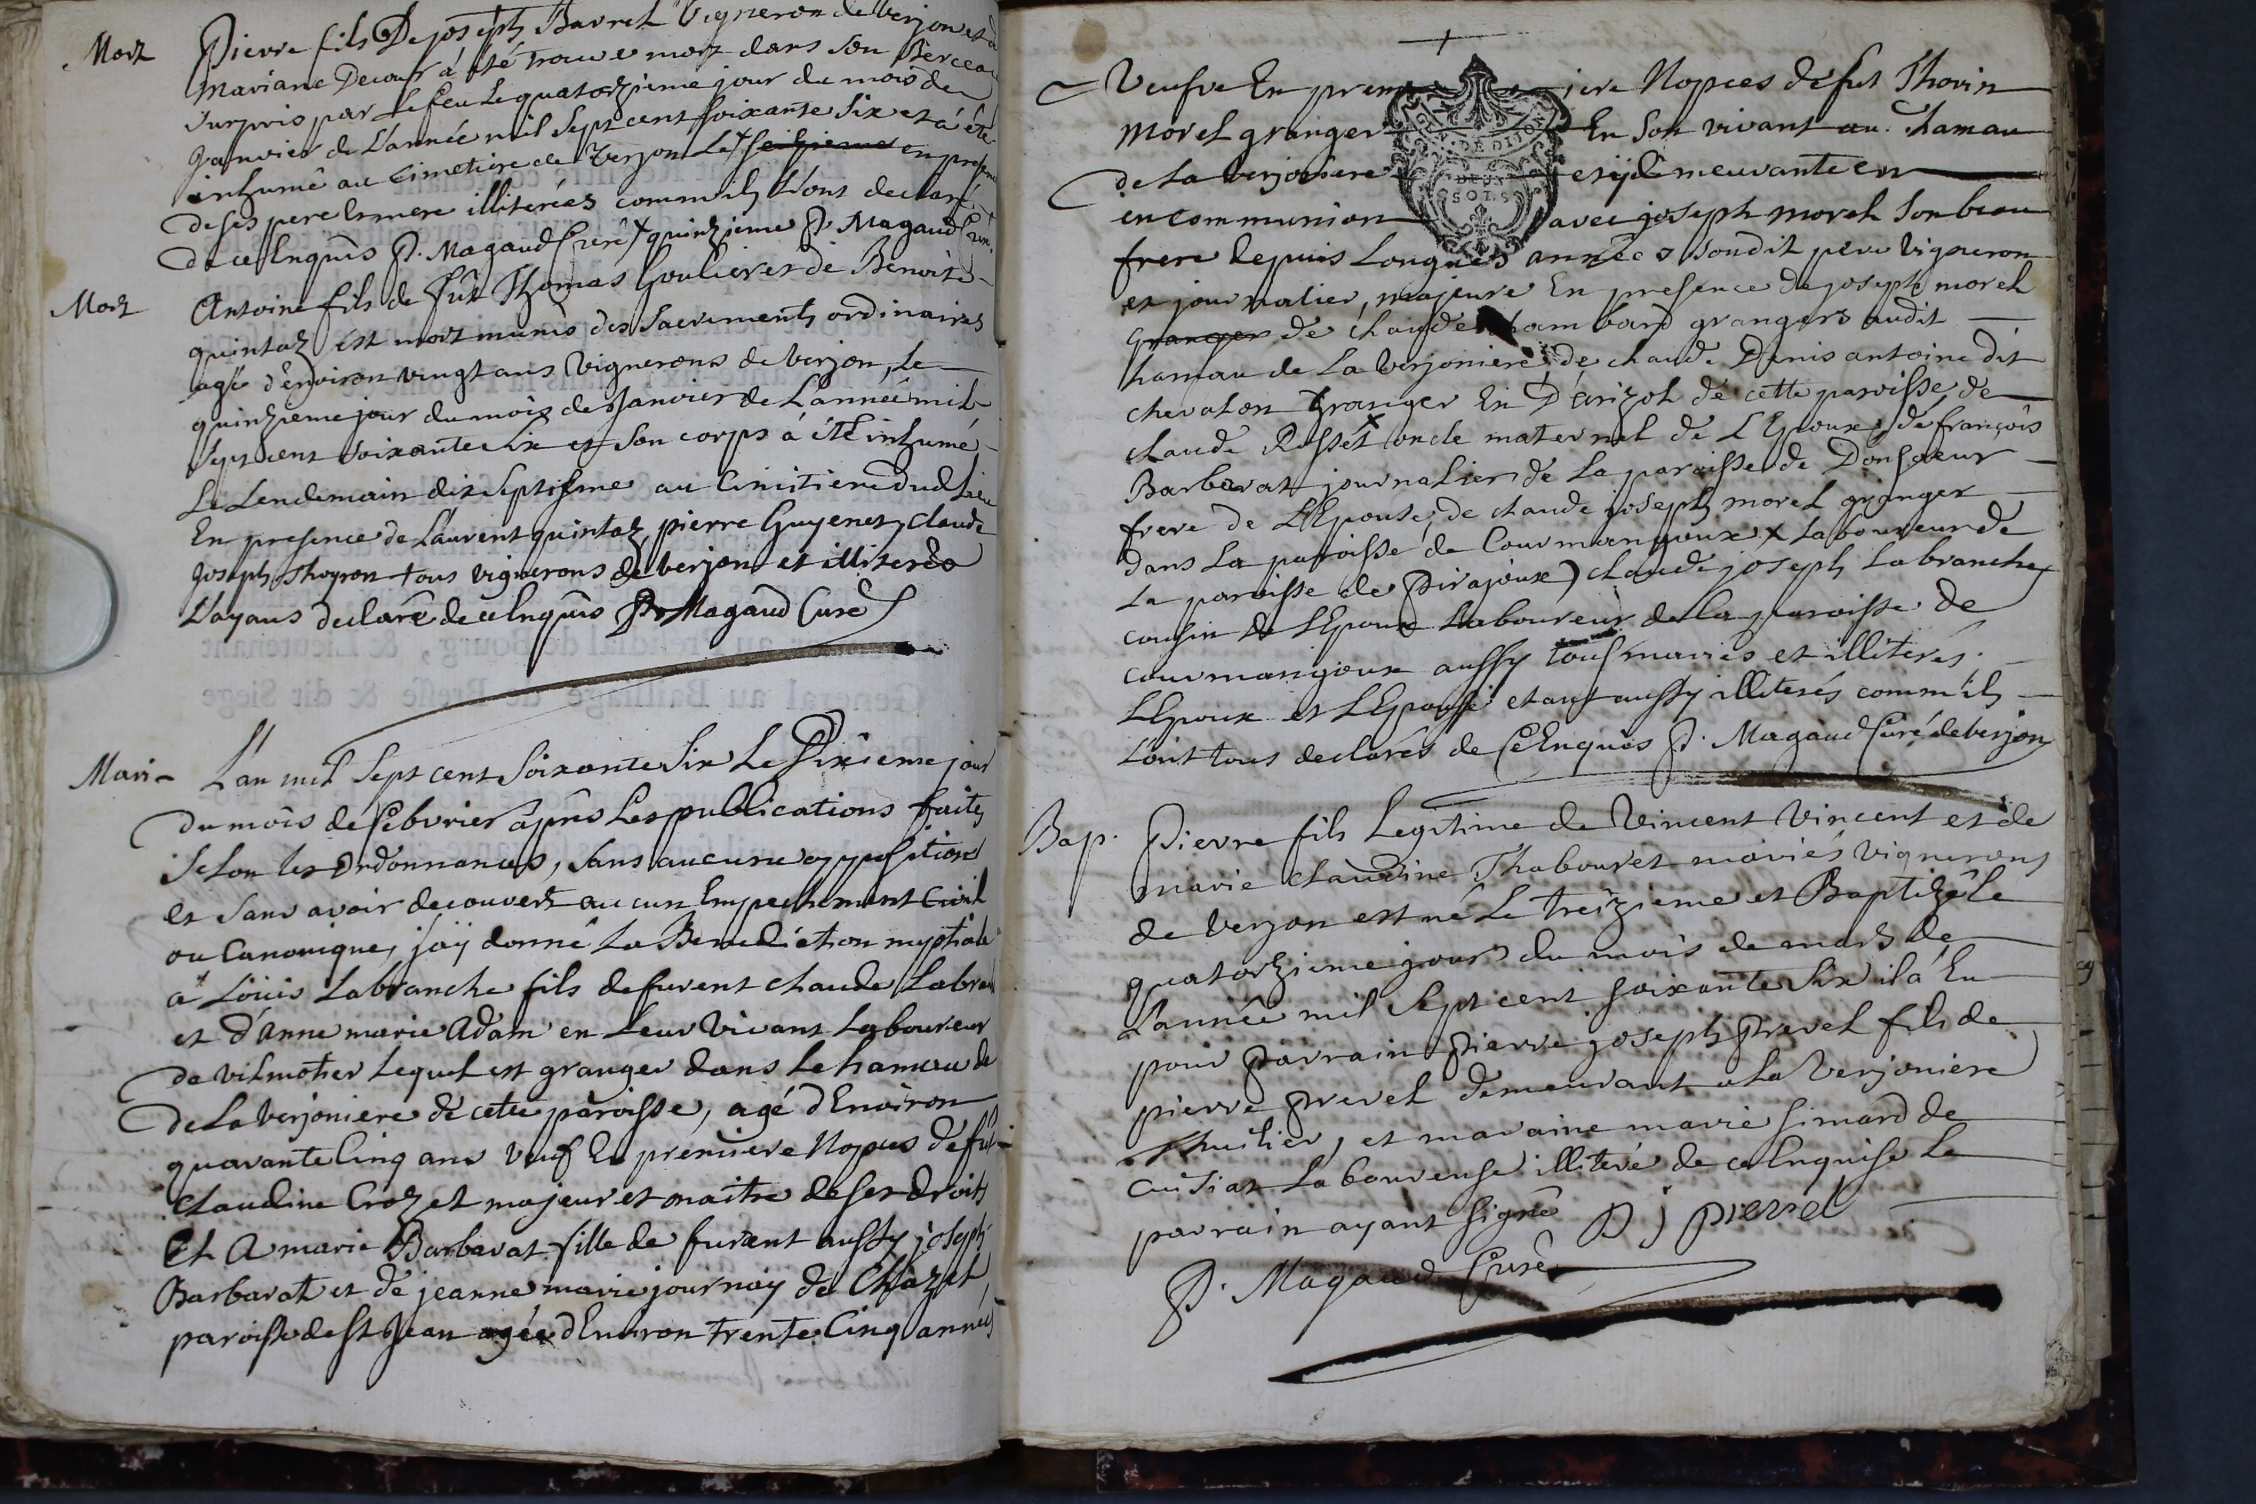 Mort
Pierre fils De joseph Barret Vigneron de verjon et de
Mariane Decour à été trouve mort dans son Berceau
surpris par le feu le quatorzieme jour du mois de
Janvier de L'année mil sept cent soixante six et à été
inhumé au Cimetiere de verjon Le + seizieme en presence
de ses pere Et mere illiterés comm'ils L'ont declaré
de ce Enquis P. Magaud Curé + quinzieme P. Magaud Curé
Mort
Antoine fils de fût Thomas Goulier et de Benoite
quintaz est mort munis des Sacrements ordinaires
agé d'environ vingt ans Vignerons de verjon, Le
quinzieme jour du mois de Janvier de L'année mil
Sept cent soixante Six et Son corps à été inhumé
Le Lendemain dix Septieme au Cimitiere dud Lieu
En presence de Laurent quintaz pierre Guyenet, claude
Joseph Thoyron tous vignerons de verjon et illiterés
L'ayans declaré de ce Enquis P. Magaud Curé
Mari-
L'an mil Sept cent Soixante Six Le Sixieme jour
du mois de febvrier après Les publications faites
Selon les Ordonnances, Sans aucune opposition
et Sans avoir decouvert aucun Empechement Civil
ou Canonique, j'aÿ donné La Benediction nuptiale
à Loüis Labranche fils de furent claude Labran
et d'anne marie Adam en Leur Vivant Laboureur
de vilmotier Lequel est granger dans Le hameau de
de La verjoniere de cette paroisse, agé d'Environ
quarante Cinq ans Veuf En premiere Nopces de fût
Claudine Crozet majeur et maitre de Ses droits
Et A marie Barbarat fille de furent aussy joseph
Barbarat et de jeanne marie journay de Chazet,
paroisse de St Jean agée d'Environ trente Cinq années
Veufve En premiere Nopces de fut Thorin
morel granger En Son vivant au hamau
de La verjoniere et ÿ demeurante en
en communion avec joseph morel Son beau
frere depuis Longues années Soudit pere Vigneron
et journalier, majeure En presence de joseph morel
granger de claude chambard grangers audit
hamau de La verjoniere de claude Denis antoine dit
chevalon granger En D'arizol de cette paroisse de
claude Rosset + oncle maternel de L'Epoux, de françois
Barbarat journalier de La paroisse de Donsaeur
frere de L'Epouse, de claude joseph morel granger
dans La paroisse de Courmangoux + Laboureur de
La paroisse de Pirajoux) claude joseph Labranche
cousin de L'Epoux Laboureur de La paroisse de
courmangoux aussy tous mariés et illiterés.
L'Epoux et L'Epouse etant aussy illiterés comm'ils
L'ont tous declarés de Ce Enquis P. Magaud Curé de verjon
Bap.
Pierre fils Legitime de Vincent Vincent et de
marie claudine Thabouret mariés Vignerons
de Verjon est né Le treizieme et Baptizé Le
quatorzieme jour du mois de mars de
L'année mil Sept cent Soixante Six il à Eu
pour parrain Pierre joseph prevel fils de
pierre prevel demeurant a La Verjoniere
Thuilier, et maraine marie Simard de
cuisiat Laboureuse illiteré de ce Enquise Le
parrain ayant Signé P j prevel
P. Magaud Curé